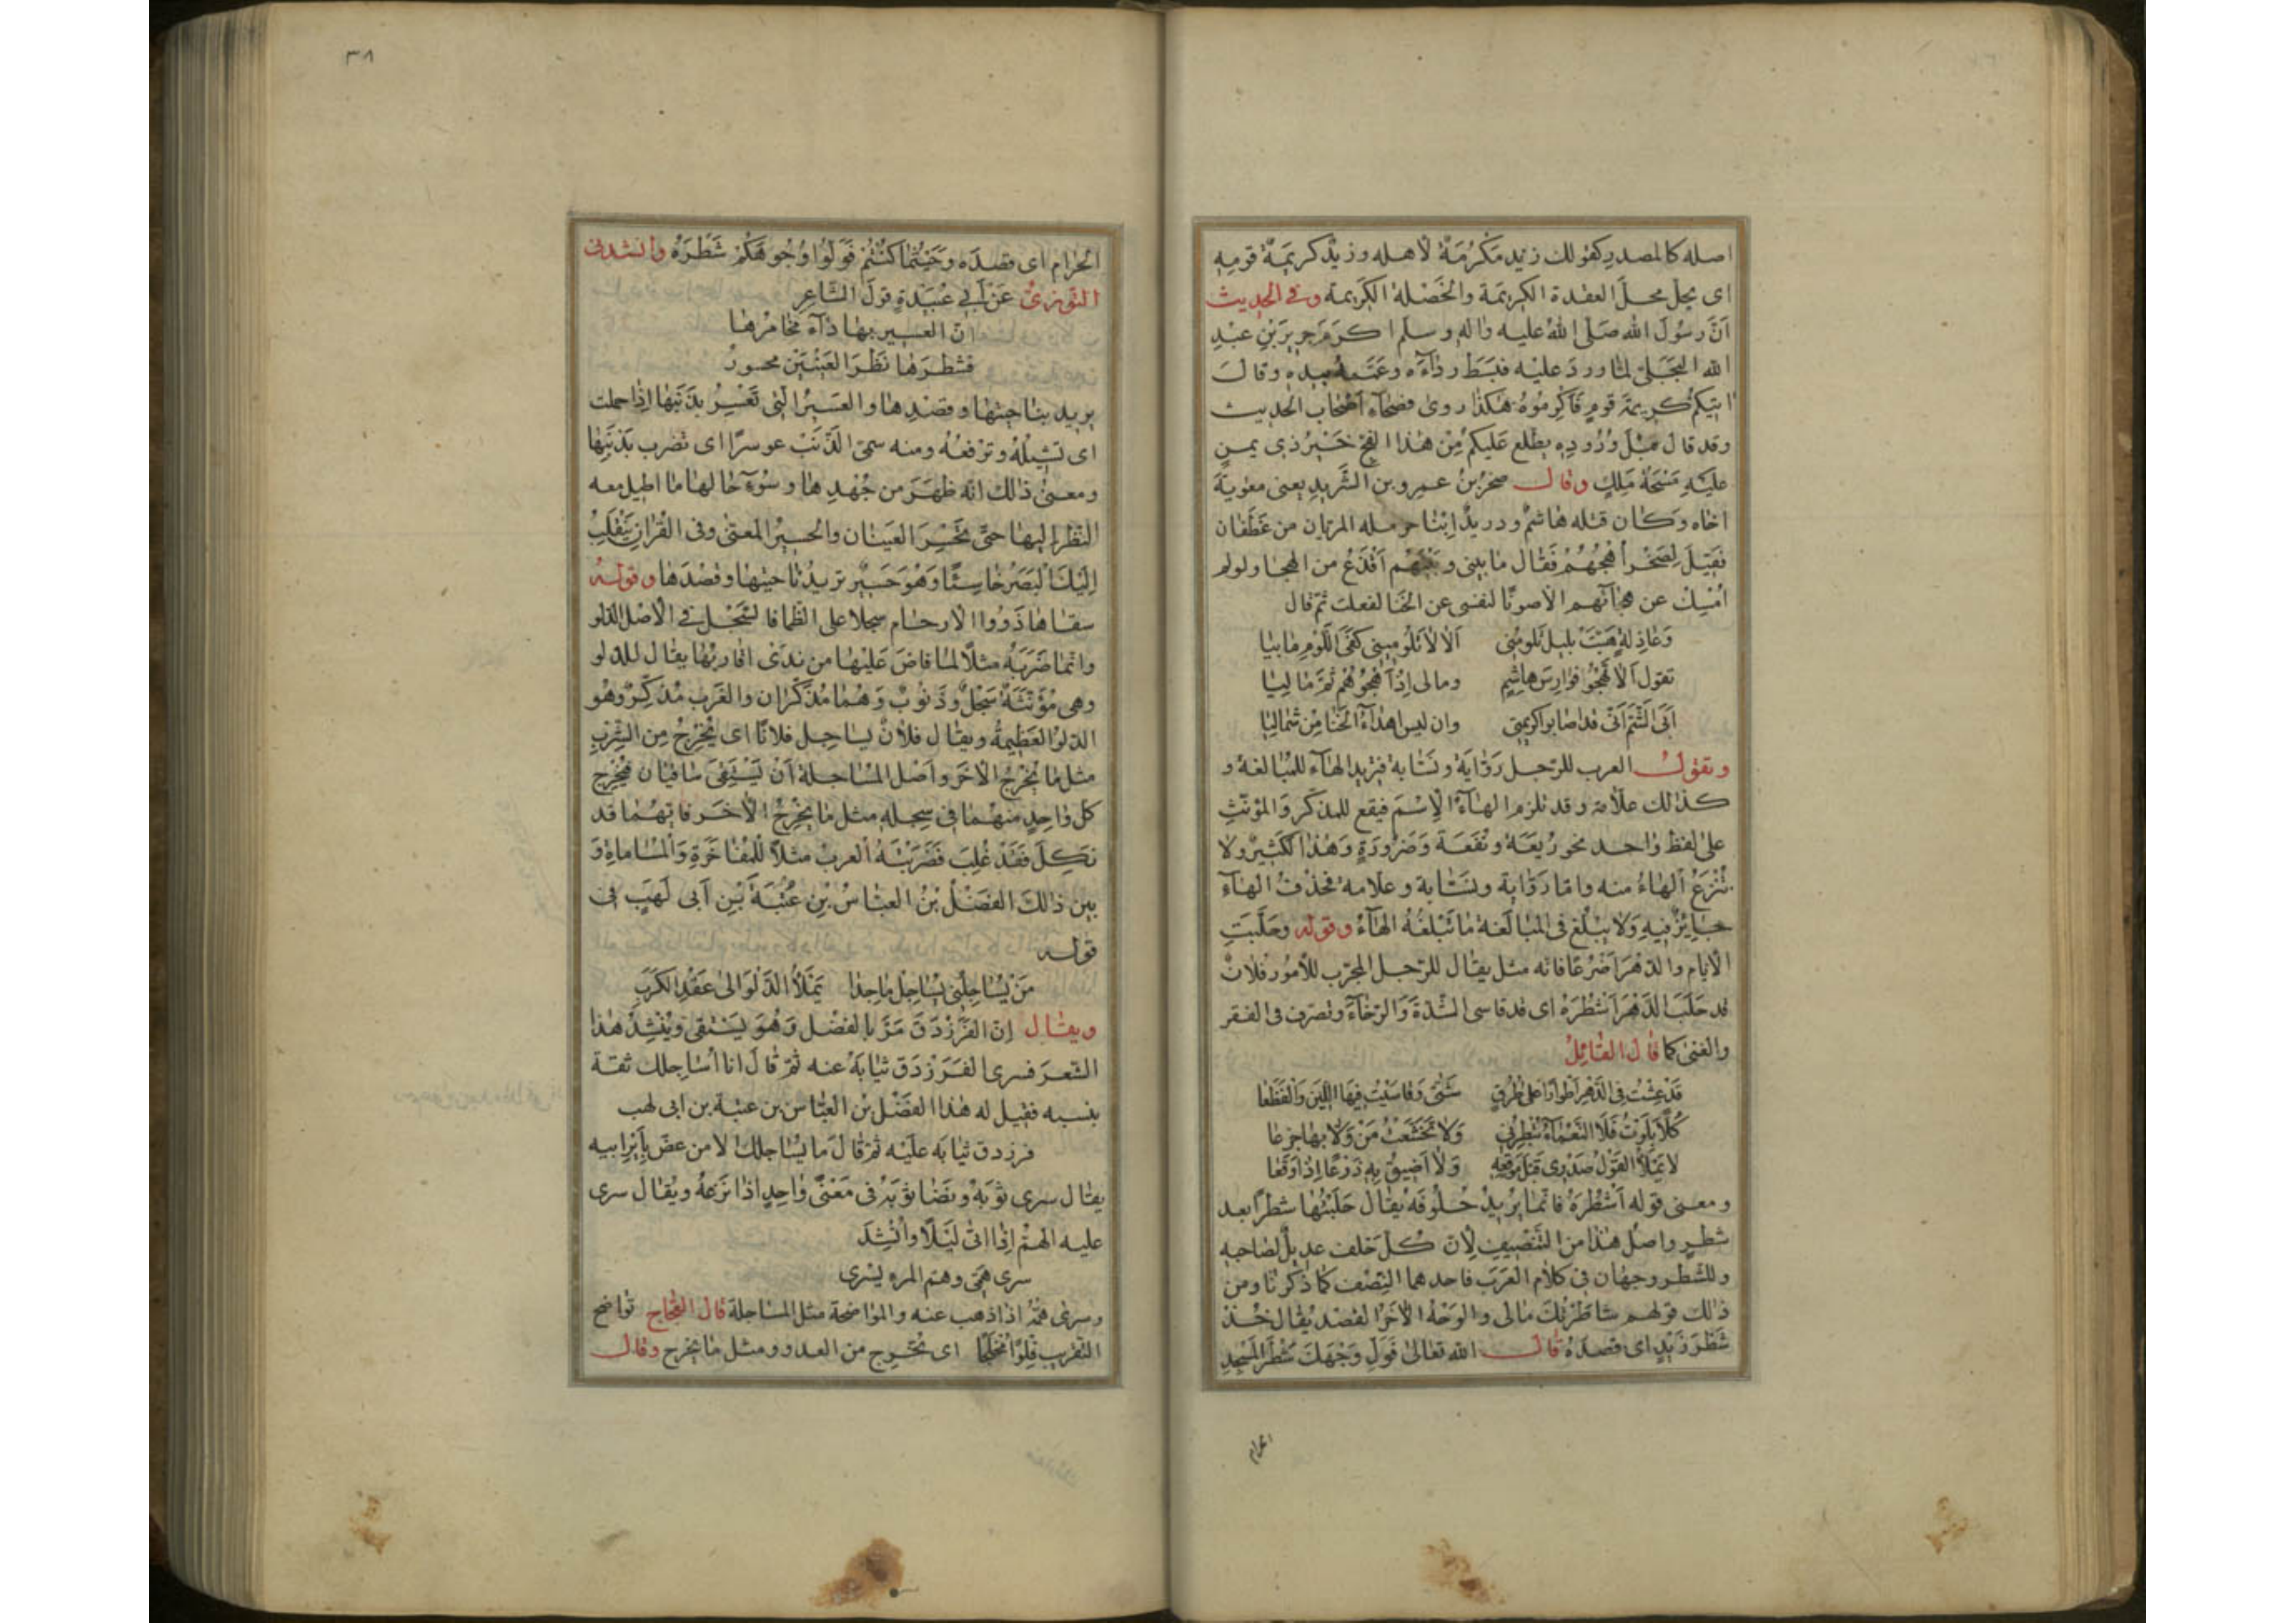 اصله كالمصدر كقولك زيد مَكْرُمَةٌ لاهله وزيد كريمَةُ قومِهِ
اى يحل محل العقدة الكريمة والخَصْلة الكَريمة وفى الحديث
اَنَّ رسُولَ الله صَلَّى اللهُ عليه واله وسلم اكرَمَ جريرَ بْنَ عبْدِ
الله البَجَلىّ لما ورد عليه فبَسَط رِدَآءَه وعَمَّمه بيده وقالَ
اذا اتيكم كريمة قومٍ فَاكرِمُوهُ هكذا روى فصحآء اصْحاب الحديث
وقد قال قبْلَ وُرُودِهِ يطلع عَليكم مِنْ هٰذا الفجّ خَيْرُ ذى يمنٍ
عليْهِ مَسْحَةُ مَلِكٍ وقال صخرُ بنُ عمرو بن الشَّريدِ يعنى معٰويةَ
اخاه وكان قتله هاشمٌ ودريدٌ اِبْنا حرمله المريان من غطَفان
فَقيلَ لِصَخْر اُهْجُهُمْ فَقال ما بينى وبَيْنَهُم اَقْذَعُ من الهجا ولو لم
اُمْسِك عن هجآئهم الا صونًا لنفسى عن الخنا لفعلت ثمّ قال
وَعاذِلةٍ هَبَّتْ بليل تَلومُنى الا لا تَلُومينى كَفَى اللَّوم ما بيا
تقول اَلا تَهْجُو فوارِسَ هاشِمٍ ومالى اِذْ اَهْجُوهُمْ ثمّ ما ليَا
اَبَى الشَّتْمَ اَنّى قد اصابوا كريمتى وان ليس اهدآءُ الخَنا مِنْ شماليَا
وتقولُ العرب للرّجل رَوَّايَةٌ ونَسّابةٌ فتزيد الهآء للمُبالغة و
كذلك علّامة وقد تلزم الهآءُ الاِسْمَ فيقع للمذكّر والمؤنّثِ
على لفظ واحد نحو رَبْعَة ونُفَعَة وَصَرُورَةٍ وَهٰذا لكثيرٌ ولا
تُنْزَعُ الهاءُ منه واما رَوّاية ونسّابة وعلامة فحَذْفُ الهآء
جايزٌ فيهِ ولا يبْلغ فى المبالَغة ما تَبْلُغُهُ الهآءُ وقوله وحَلَبَتِ
الايام والدّهرَ اَضْرُعًا فانه مثل يقال للرّجل المجرّب للاُمور فلانٌ
قد حلَبَ الدَّهْرَ اَشْطُرَهُ اى قد قاسى الشدّةَ وَالرّخآءَ وتصرّف فى الفقر
والغنى كما قال القائِلُ
قَدْ عِشْتُ فى الدَّهْرِ اَطْوارًا على طُرُقٍ شَتَّى وَقاسَيْتُ فيها اللّينَ وَالفَظَعا
كُلًّا بَلَوْتُ فلا النَّعْمآءُ تُبْطِرُنى وَلا تَخَشَّعْتُ مِنْ لاوائها جزعا
لا يَمْلأُ القَوْلُ صَدْرى قبْل مَوْقِعِهِ وَلا اَضيقُ بِهِ ذَرْعًا اِذا وَقَعا
ومعنى قوله اَشْطُرَهُ فانّما يُريدُ خُلُوفَهُ يُقال حَلَبْتُها شطرًا بعد
شطر واصْلُ هٰذا من التَّنْصيفِ لِانّ كُلّ خلف عديلٌ لصاحبهِ
وللشّطر وجهان فى كلام العَرَب فاحدهما النِّصْف كما ذكرنا ومن
ذٰلك قولهم شاطَرْتُكَ مالى والوَجْهُ الاٰخَرُ القصْد يُقال خُذْ
شَطْرَ زَيْدٍ اى قصدَهُ قال الله تعالى فَوَلِّ وَجْهَكَ شَطْرَ المَسْجِدِ
الحرام
٣٨
الحَرامِ اى قصدَه وحَيْثُما كُنْتُمْ فَوَلّوُا وُجُوهَكُمْ شَطْرَهُ وانشدنى
التوّزىُّ عَنْ اَبى عُبَيْدَةٍ قولَ الشّاعِرِ
انّ العسيرَ بِها دآءٌ مخامرها
فشطرَها نَظَرَ العَيْنَيْنِ محسورُ
يريد بناحيتها وقصْدِها والعَسيرُ الّتى تَعْسِرُ بذَنَبِها اِذا حملت
اى تشيلُهُ وترفعُهُ ومنه سمى الذَّنَبُ عوسرًا اى تضرب بذنَبِها
ومعنىٰ ذالك انّه ظهَرَ من جُهْدِها وسُوٓءِ حالها ما اطيل معه
النّظر اليها حتّى تَحْسِرَ العَيْنان والحسيرُ المعنّى وفى القُرانِ يَنْقَلِبْ
اِلَيْكَ البَصَرُ خاسِئًا وَهُوَ حَسيرٌ تريدُ ناحيتها وقصْدَها وقولُهُ
سقاها ذَوُوا الارحام سجلا على الظّما فالسَّجْل فى الاَصْل الدّلو
وانّما ضَرَبَهُ مثلًا لما فاضَ عَلَيْها من نَدى اقاربها يقال للدلو
وهى مُؤَنَّثَةٌ سَجْلٌ وذَنُوبٌ وَهُما مُذَكَّران والغَرْب مُذكّرٌ وهُو
الدّلوُ العَظيمةُ ويقال فلانٌ يساجل فلانًا اى يُخْرِجُ مِن الشِّربِ
مثل ما يُخْرِجُ الاٰخَر واَصْل المُساجلة اَنْ يَسْتَقِىَ ساقيان فيُخْرِج
كلّ واحِدٍ منْهُما فى سِجله مثل ما يُخْرِجُ الاٰخَر فايّهُما قد
نَكَلَ فَقَدْ غُلِبَ فَضَرَبَتْهُ العربُ مثلًا للْمُفاخَرَةِ وَالمُساماةِ وَ
بين ذالكَ الفَضْلُ بْنُ العبّاسُ بْنِ عُتْبَةَ بْنِ اَبى لَهَبٍ فى
قوله
مَنْ يُساجِلْنى يُساجِلْ ماجِدًا يَمْلأُ الدَّلْوَ الى عَقْدِ الكَرَبِ
ويقال اِنّ الفَرَزْدَقَ مَرَّ بالفضْل وَهُوَ يَسْتَقى ويُنْشِدُ هٰذا
الشّعرَ فسرى الفَرَزْدَق ثيابَهُ عنه ثمّ قالَ انا اُساجِلك ثقة
بنسبه فقيل له هٰذا الفَضْلُ بن العبّاس بن عتبة بن ابى لهب
فرزدق ثيابَه علَيْه ثمّ قالَ ما يُساجلك الا من عضّ بِاَيْرِ ابيه
يقال سرى ثوْبَهُ ونَضا ثوْبَهُ فى مَعْنًى واحِدٍ اذا نَزَعهُ ويُقال سرى
عليه الهمّ اِذا اتى لَيْلًا وانْشَدَ
سرى هَمّى وهَمّ المرءِ يَسْرى
وسرى هَمُّهُ اذا ذهب عنه والمواضحة مثل المساجلة قال العَجّاج تواضح
التقريبَ قِلْوًا مُحْلَجا اى تُخْرِج من العدو ومثل ما يخرج وقال